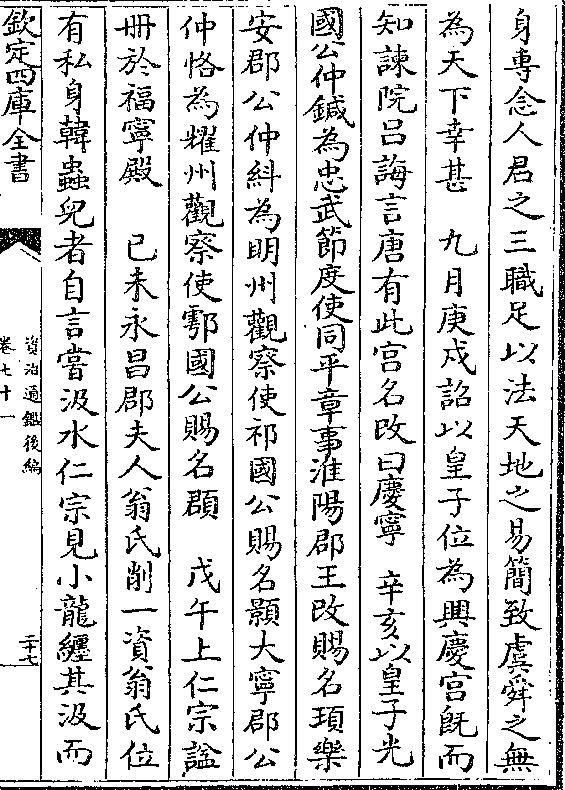 身專念人君之三職足以法天地之易簡致虞舜之無
為天下幸甚　九月庚戍詔以皇子位為興慶宮旣而
知諫院呂誨言唐有此宮名改曰慶寧　辛亥以皇子光
國公仲鍼為忠武節度使同平章事淮陽郡王改賜名頊樂
安郡公仲糾為明州觀察使祁國公賜名顥大寧郡公
仲恪為耀州觀察使鄠國公賜名頵　戊午上仁宗諡
冊於福寧殿　已未永昌郡夫人翁氏削一資翁氏位
有私身韓蟲兒者自言嘗汲水仁宗見小龍纏其汲而
欽定四庫全書
資治通鑑後編
卷七十一
二十七